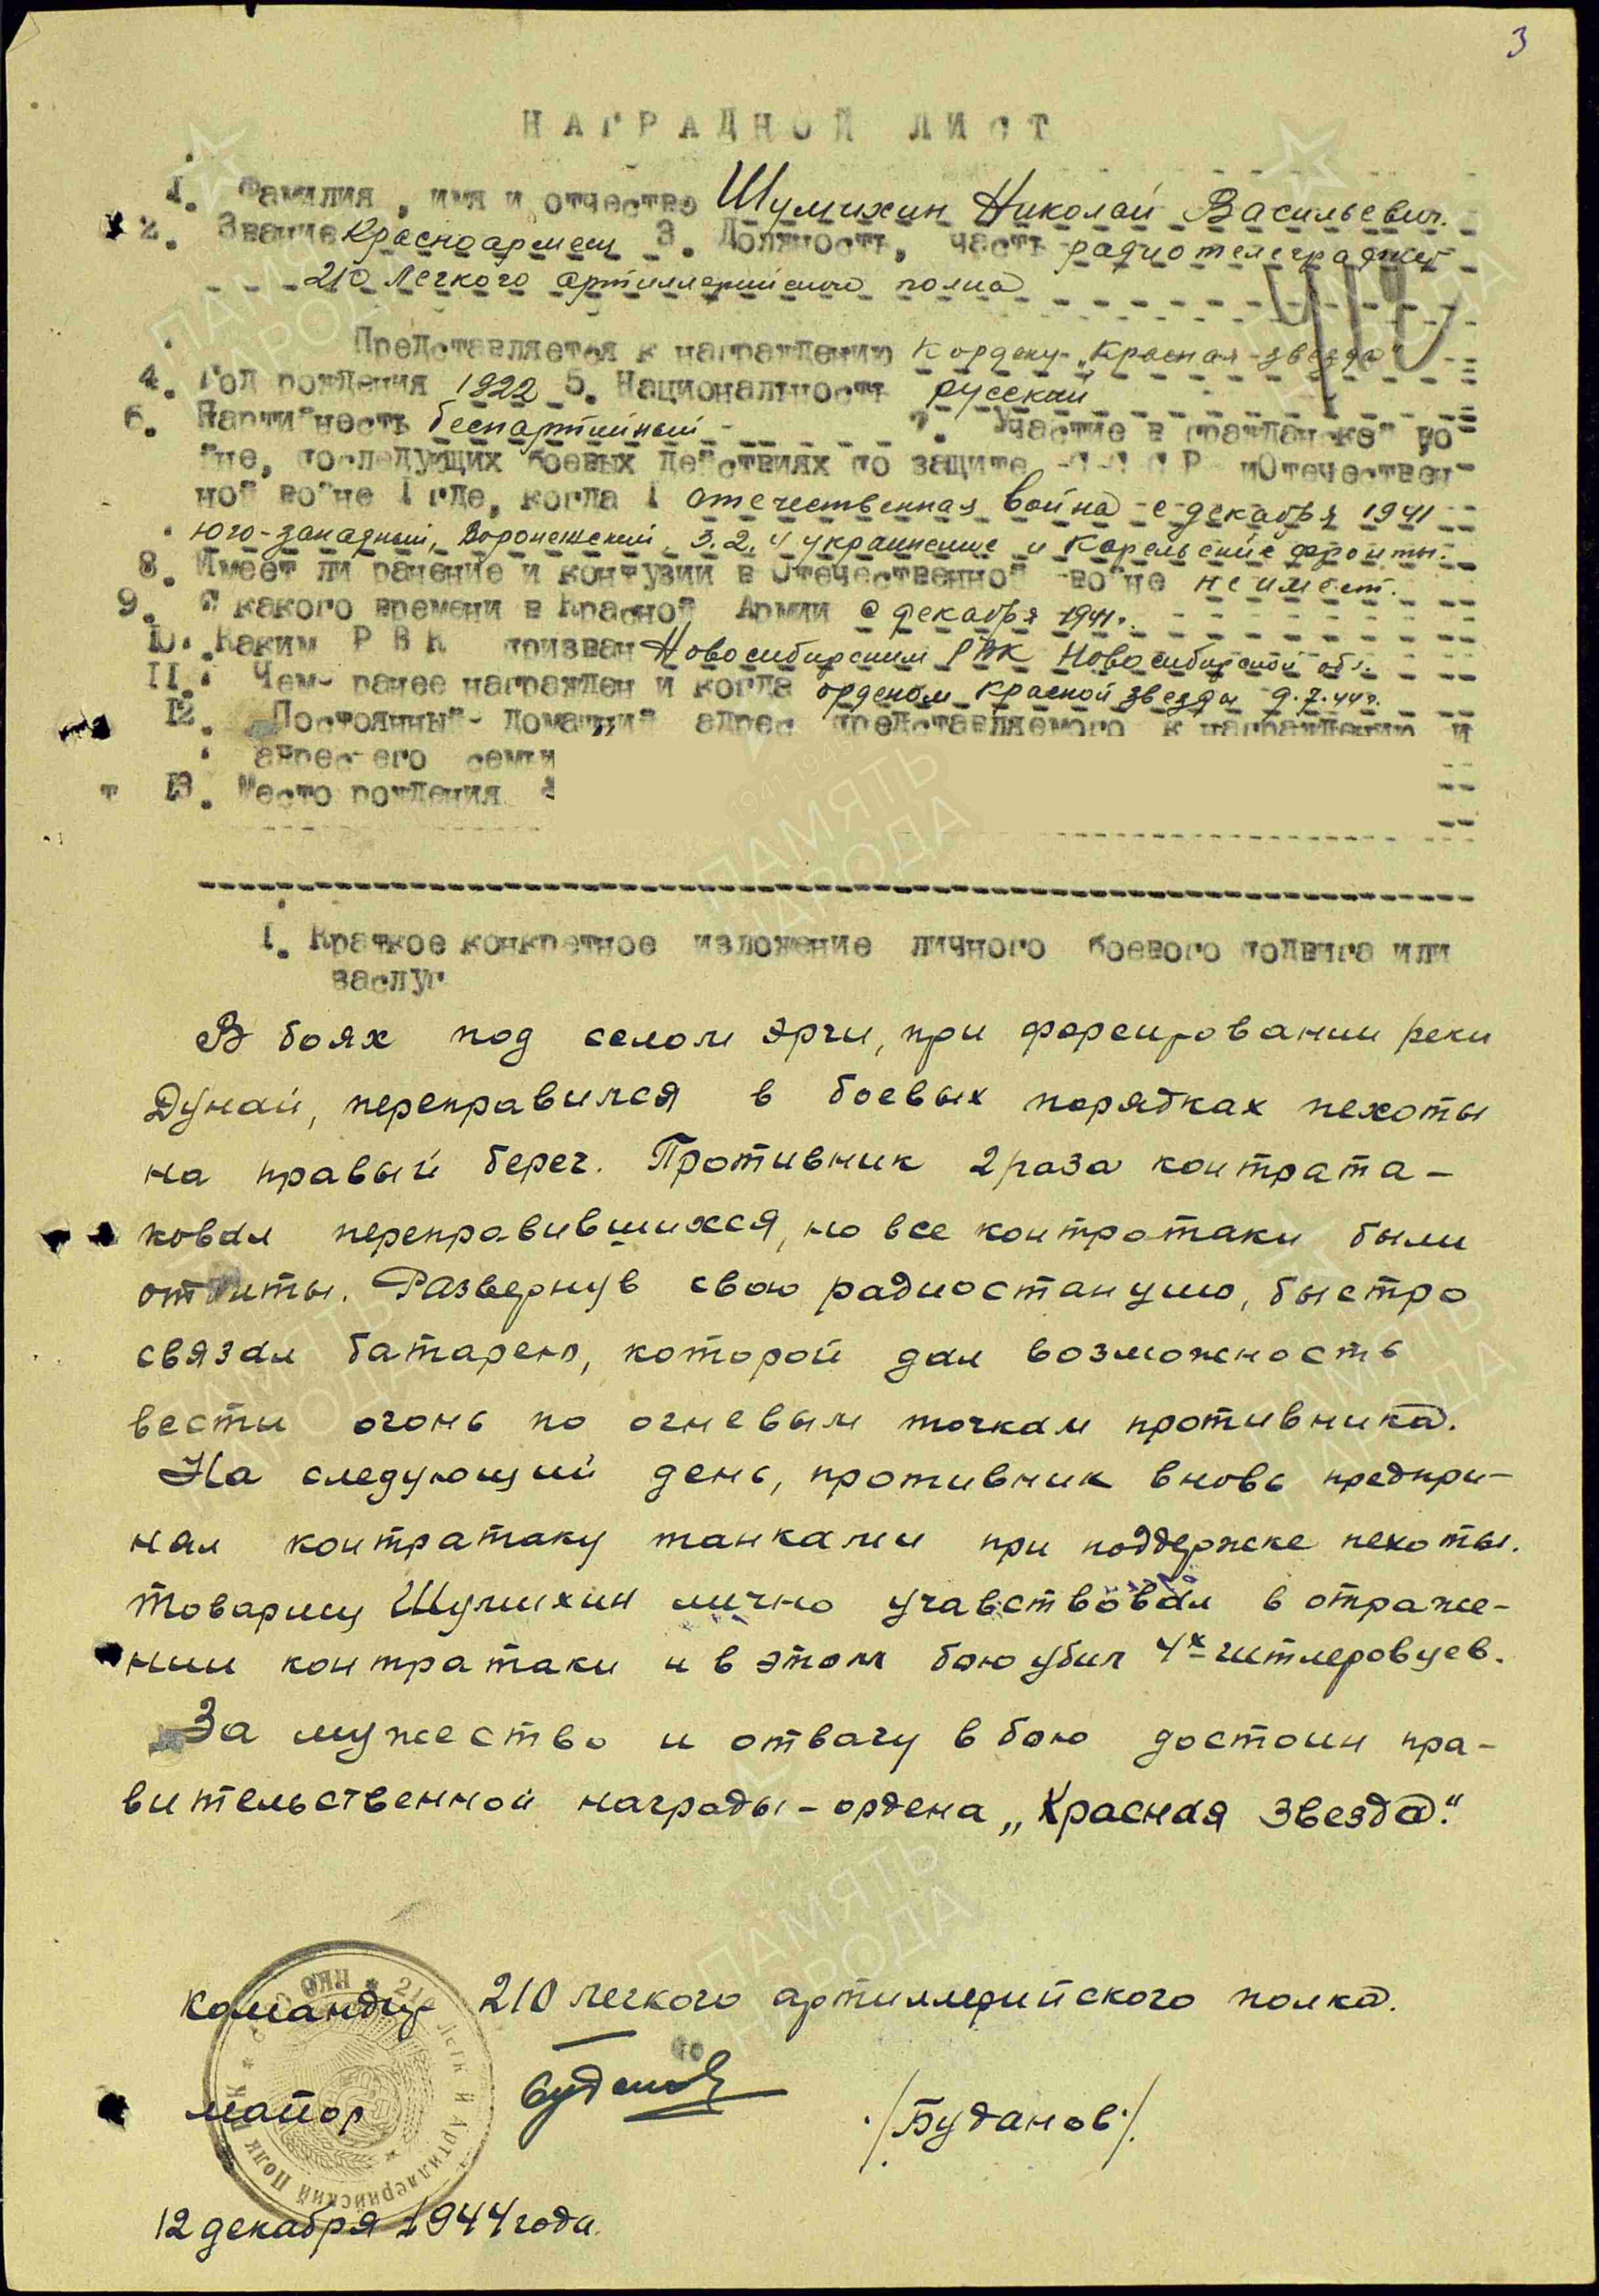 3
НАГРАДНОЙ ЛИСТ
1. Фамилия, имя и отчество Шумихин Николай Васильевич.
2. Звание Красноармеец 3. Должность, часть радиотелеграфист
210 Легкого артиллерийского полка
Представляется к награждению к ордену „Красная звезда"
4. Год рождения 1922 5. Национальность русский
6. Партийность беспартийный 7. Участие в гражданской во-
йне, последующих боевых действиях по защите СССР и Отечествен-
ной войне где, когда отечественная война с декабря 1941
юго-западный, Воронежский, 3.2.4 украинские и Карельский фронты.
8. Имеет ли ранение и контузии в Отечественной войне не имеет.
9. С какого времени в Красной Армии с декабря 1941г.
10. Каким РВК призван Новосибирским РВК Новосибирской обл.
11. Чем ранее награжден и когда орденом Красной звезды 9.7.44г.
12. Постоянный домашний адрес представляемого к награждению и
адрес его семьи
13. Место рождения
1. Краткое конкретное изложение личного боевого подвига или
заслуг
В боях под селом Эрчи, при форсировании реки
Дунай, переправился в боевых порядках пехоты
на правый берег. Противник 2 раза контрата-
ковал переправившихся, но все контратаки были
отбиты. Развернув свою радиостанцию, быстро
связал батарею, которой дал возможность
вести огонь по огневым точкам противника.
На следующий день, противник вновь предпри-
нял контратаку танками при поддержке пехоты.
Товарищ Шумихин лично учавствовал в отраже-
нии контратаки и в этом бою убил 4х гитлеровцев.
За мужество и отвагу в бою достоин пра-
вительственной награды - ордена „Красная Звезда".
Командир 210 легкого артиллерийского полка.
майор
/Буданов/
12 декабря 1944 года.
ПАМЯТЬ
НАРОДА